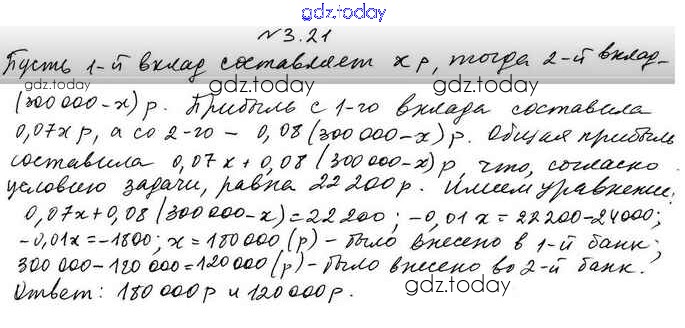 gdz.today
№3.21
Пусть 1-й вклад составляет x р, тогда 2-й вклад-
gdz.today gdz.today
(300 000-x) р. Прибыль с 1-го вклада составила
0,07x р, а со 2-го - 0,08 (300 000-x) р. Общая прибыль
составила 0,07x+0,08 (300 000-x) р, что, согласно
gdz.today gdz.today
условию задачи, равна 22 200 р. Имеем уравнение:
0,07x+0,08 (300 000-x)=22 200; -0,01x=22200-24000;
-0,01x=-1800; x=180000 (р) - было внесено в 1-й банк;
300 000-180 000=120000 (р) - было внесено во 2-й банк.
gdz.today gdz.today
Ответ: 180 000 р и 120 000 р.